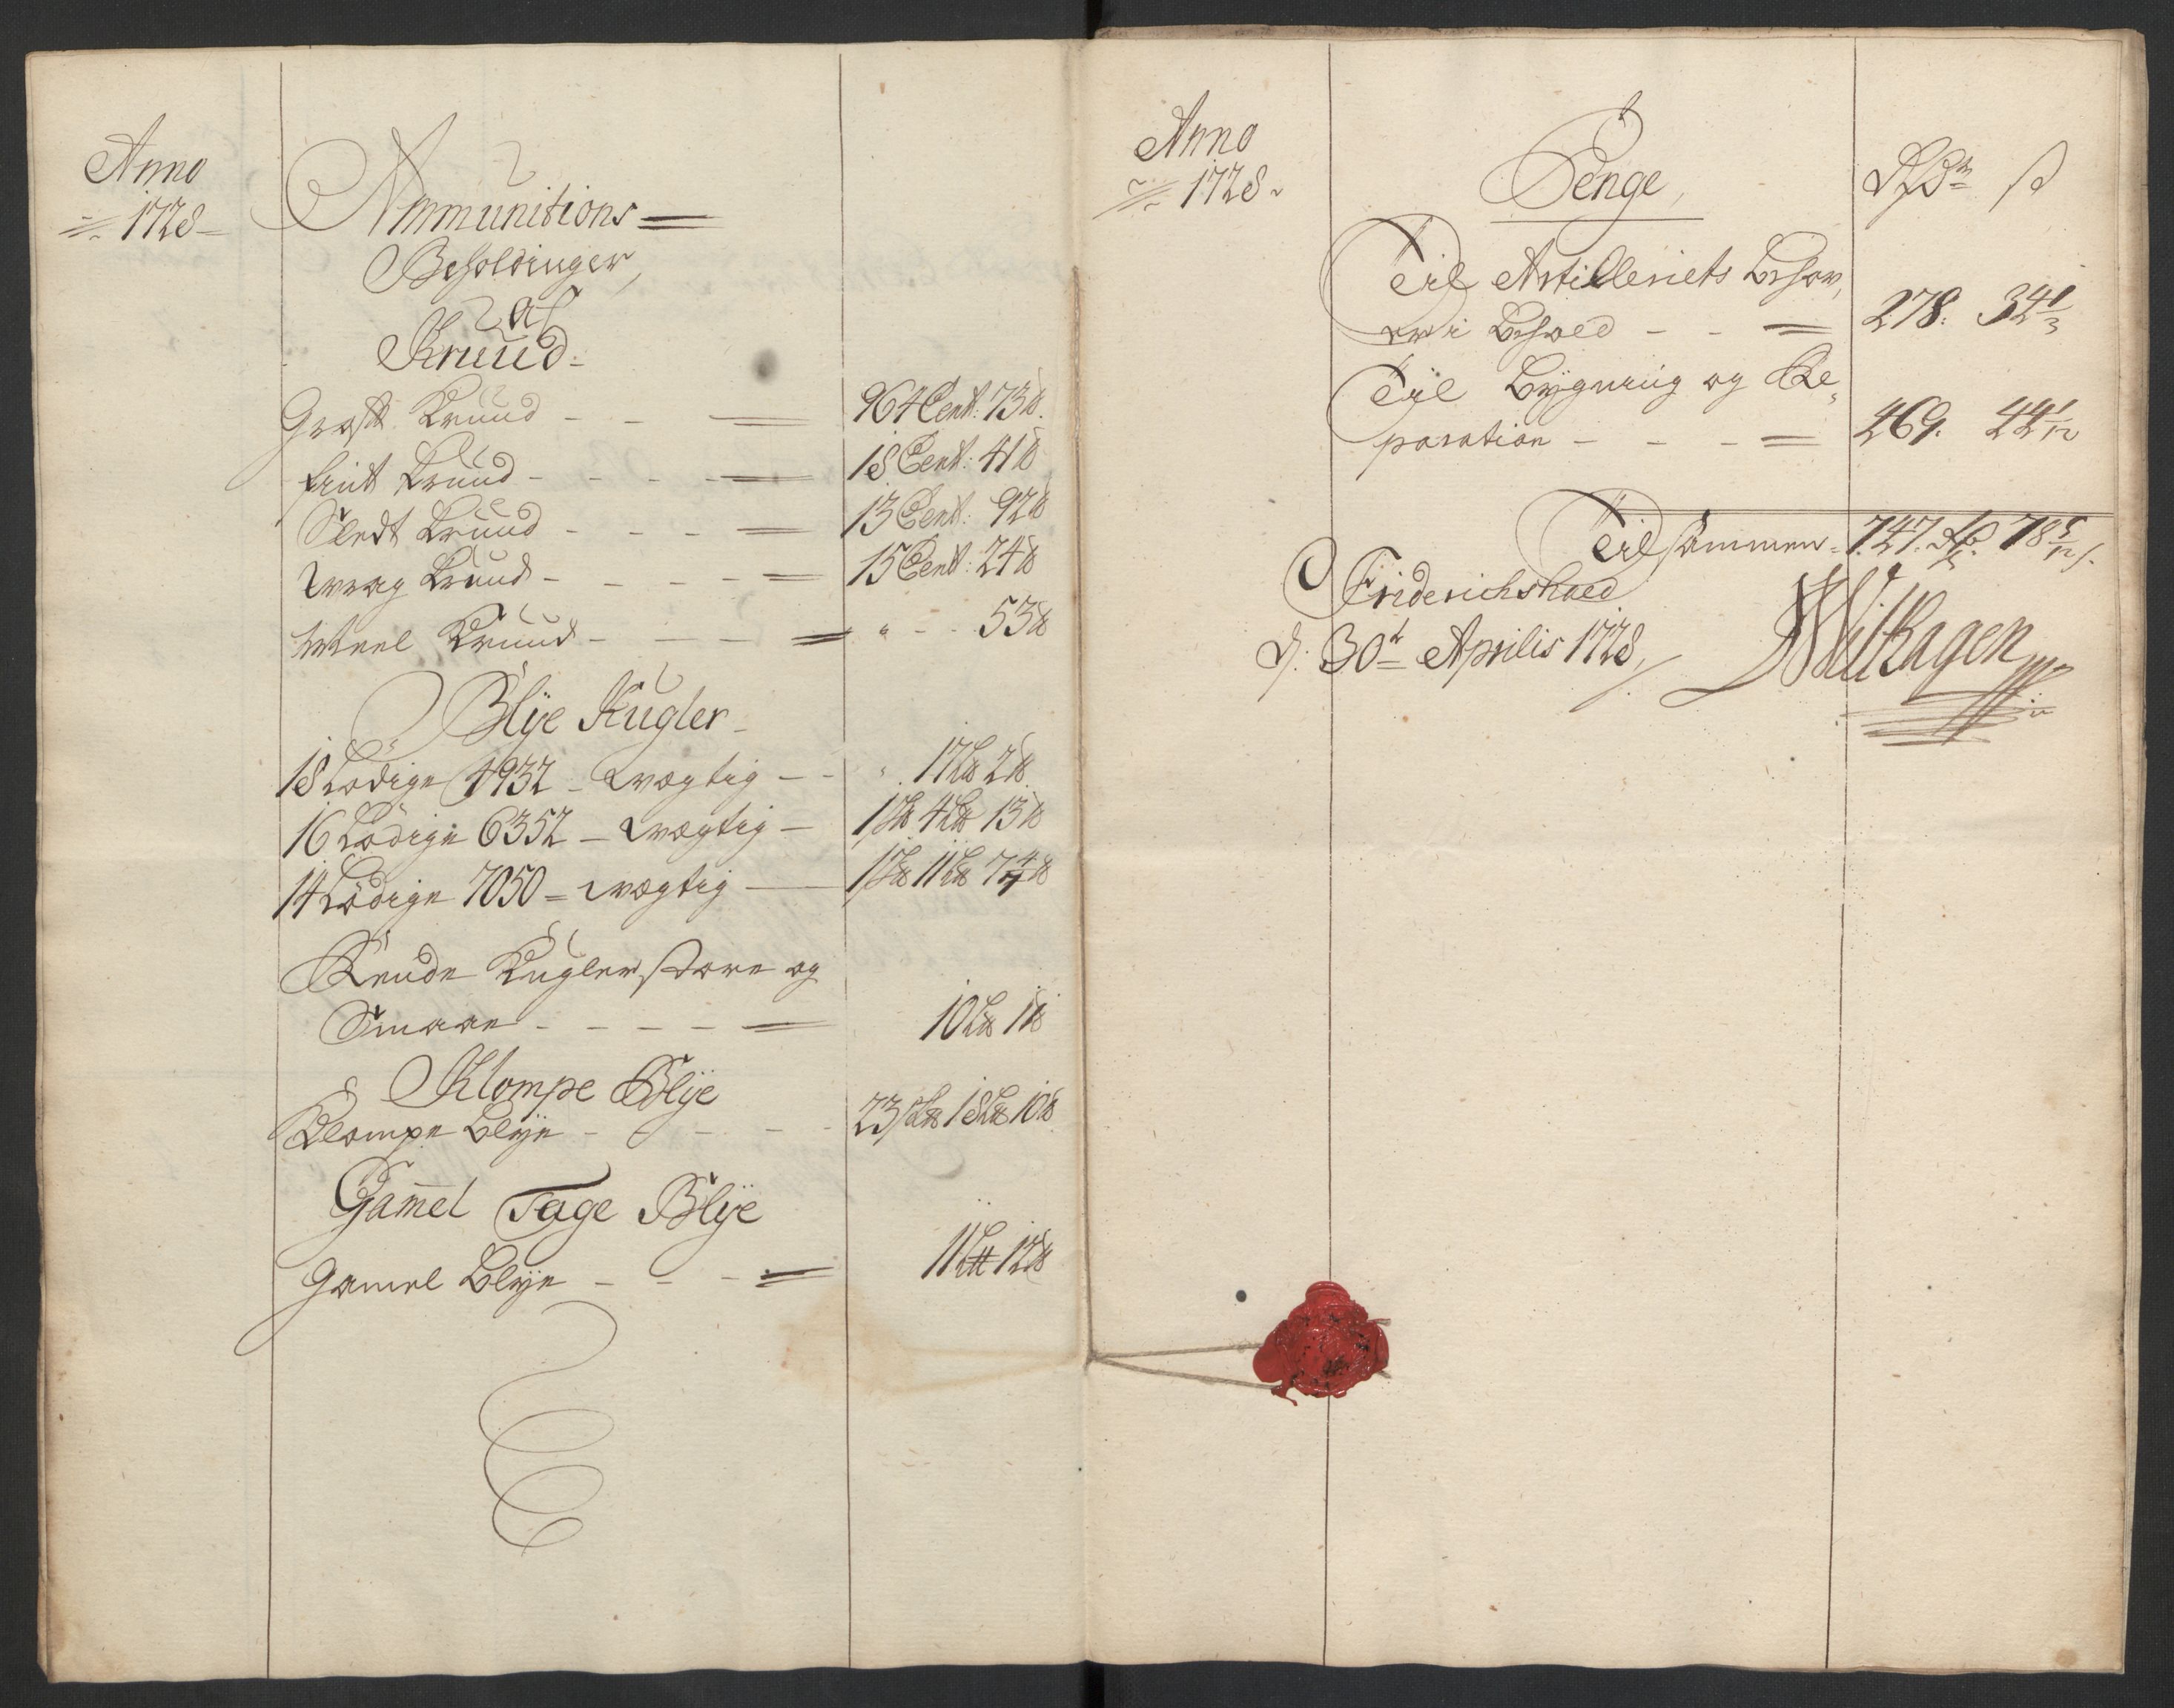 Anno
1728
Ammunitions
Beholdinger
af
Kruud
Groft Kruud - - 964 Cent: 73 ℔.
Fint Kruud - - - - 18 Cent: 41 ℔
Slet Kruud - - - 13 Cent: 92 ℔
Vrag Kruud - - - - - 15 Cent: 24 ℔
Meel Kruud - - - " - - 53 ℔
Blÿe Kugler
18 Lödige 4932 - vægtig - - " 17 L℔ 2 ℔
16 Lödige 6352 - vægtig - 1 S℔ 4 L℔ 13 ℔
14 Lödige 7050 - vægtig - 1 S℔ 11 L℔ 7 4/7 ℔
Rende Kugler store og
Smaae - - - - 10 L℔ 1 ℔
Klompe Blÿe
Klompe blÿe - - - - 23 S℔ 18 L℔ 10 ℔
Gam̄el Tage Blÿe
Gamel blÿe - - - 11 L℔ 12 ℔
Anno
1728
Penge, Rdr ß
Til Artilleriets behov,
er i behold - - 278. 34 1/3
Til bÿgning og Re,
paration - - - 469. 44 1/12
Tilsammen - 747. Rdr. 78 5/12 ß.
Friderichshald
d: 30t Aprilis 1728,
Wilhagen